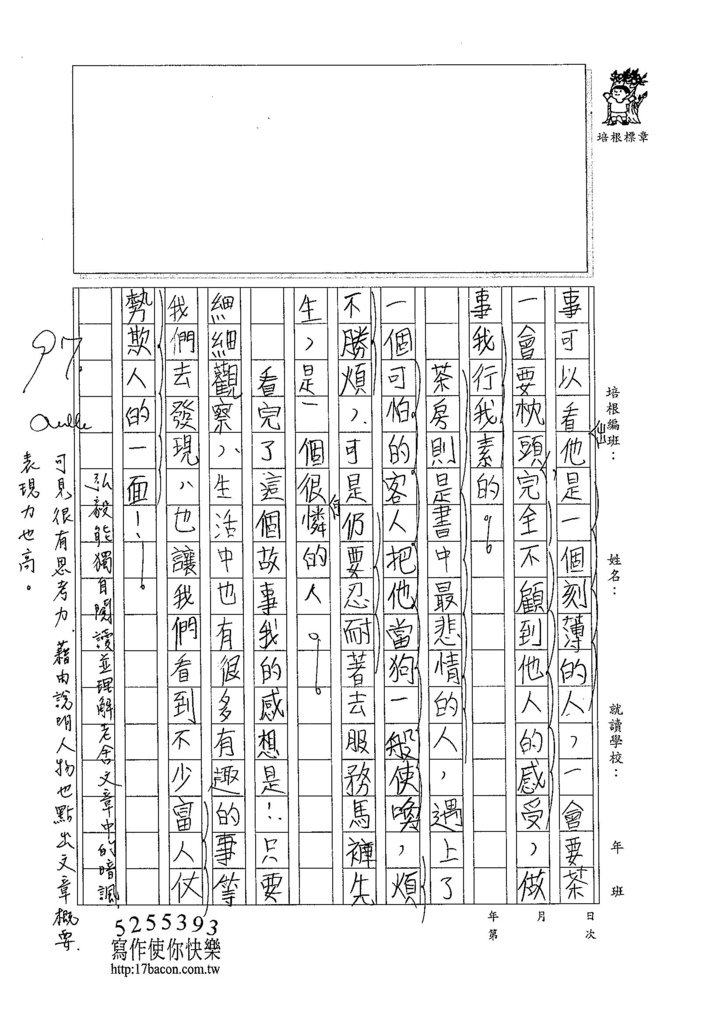 培根標章
培根編班：
姓名：
就讀學校：
年 班
年 月 日
第 次
事可以看他是一個刻薄的人，一會要茶
出
一會要枕頭完全不顧到他人的感受，做
事我行我素的。
茶房則是書中最悲情的人，遇上了
一個可怕的客人把他當狗一般使喚，煩
不勝煩，可是仍要忍耐著去服務馬褲先
生，是一個很憐的人。
看完了這個故事我的感想是！只要
細細觀察，生活中也有很多有趣的事等
我們去發現，也讓我們看到不少富人仗
勢欺人的一面！
弘毅能獨自閱讀並理解老舍文章中的暗諷，
可見很有思考力。藉由說明人物也點出文章概要，
表現力也高。
97
5255393
寫作使你快樂
http:17bacon.com.tw